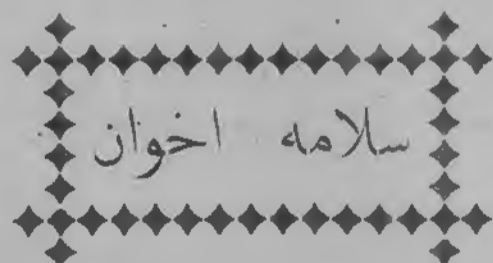 سلامه اخوان